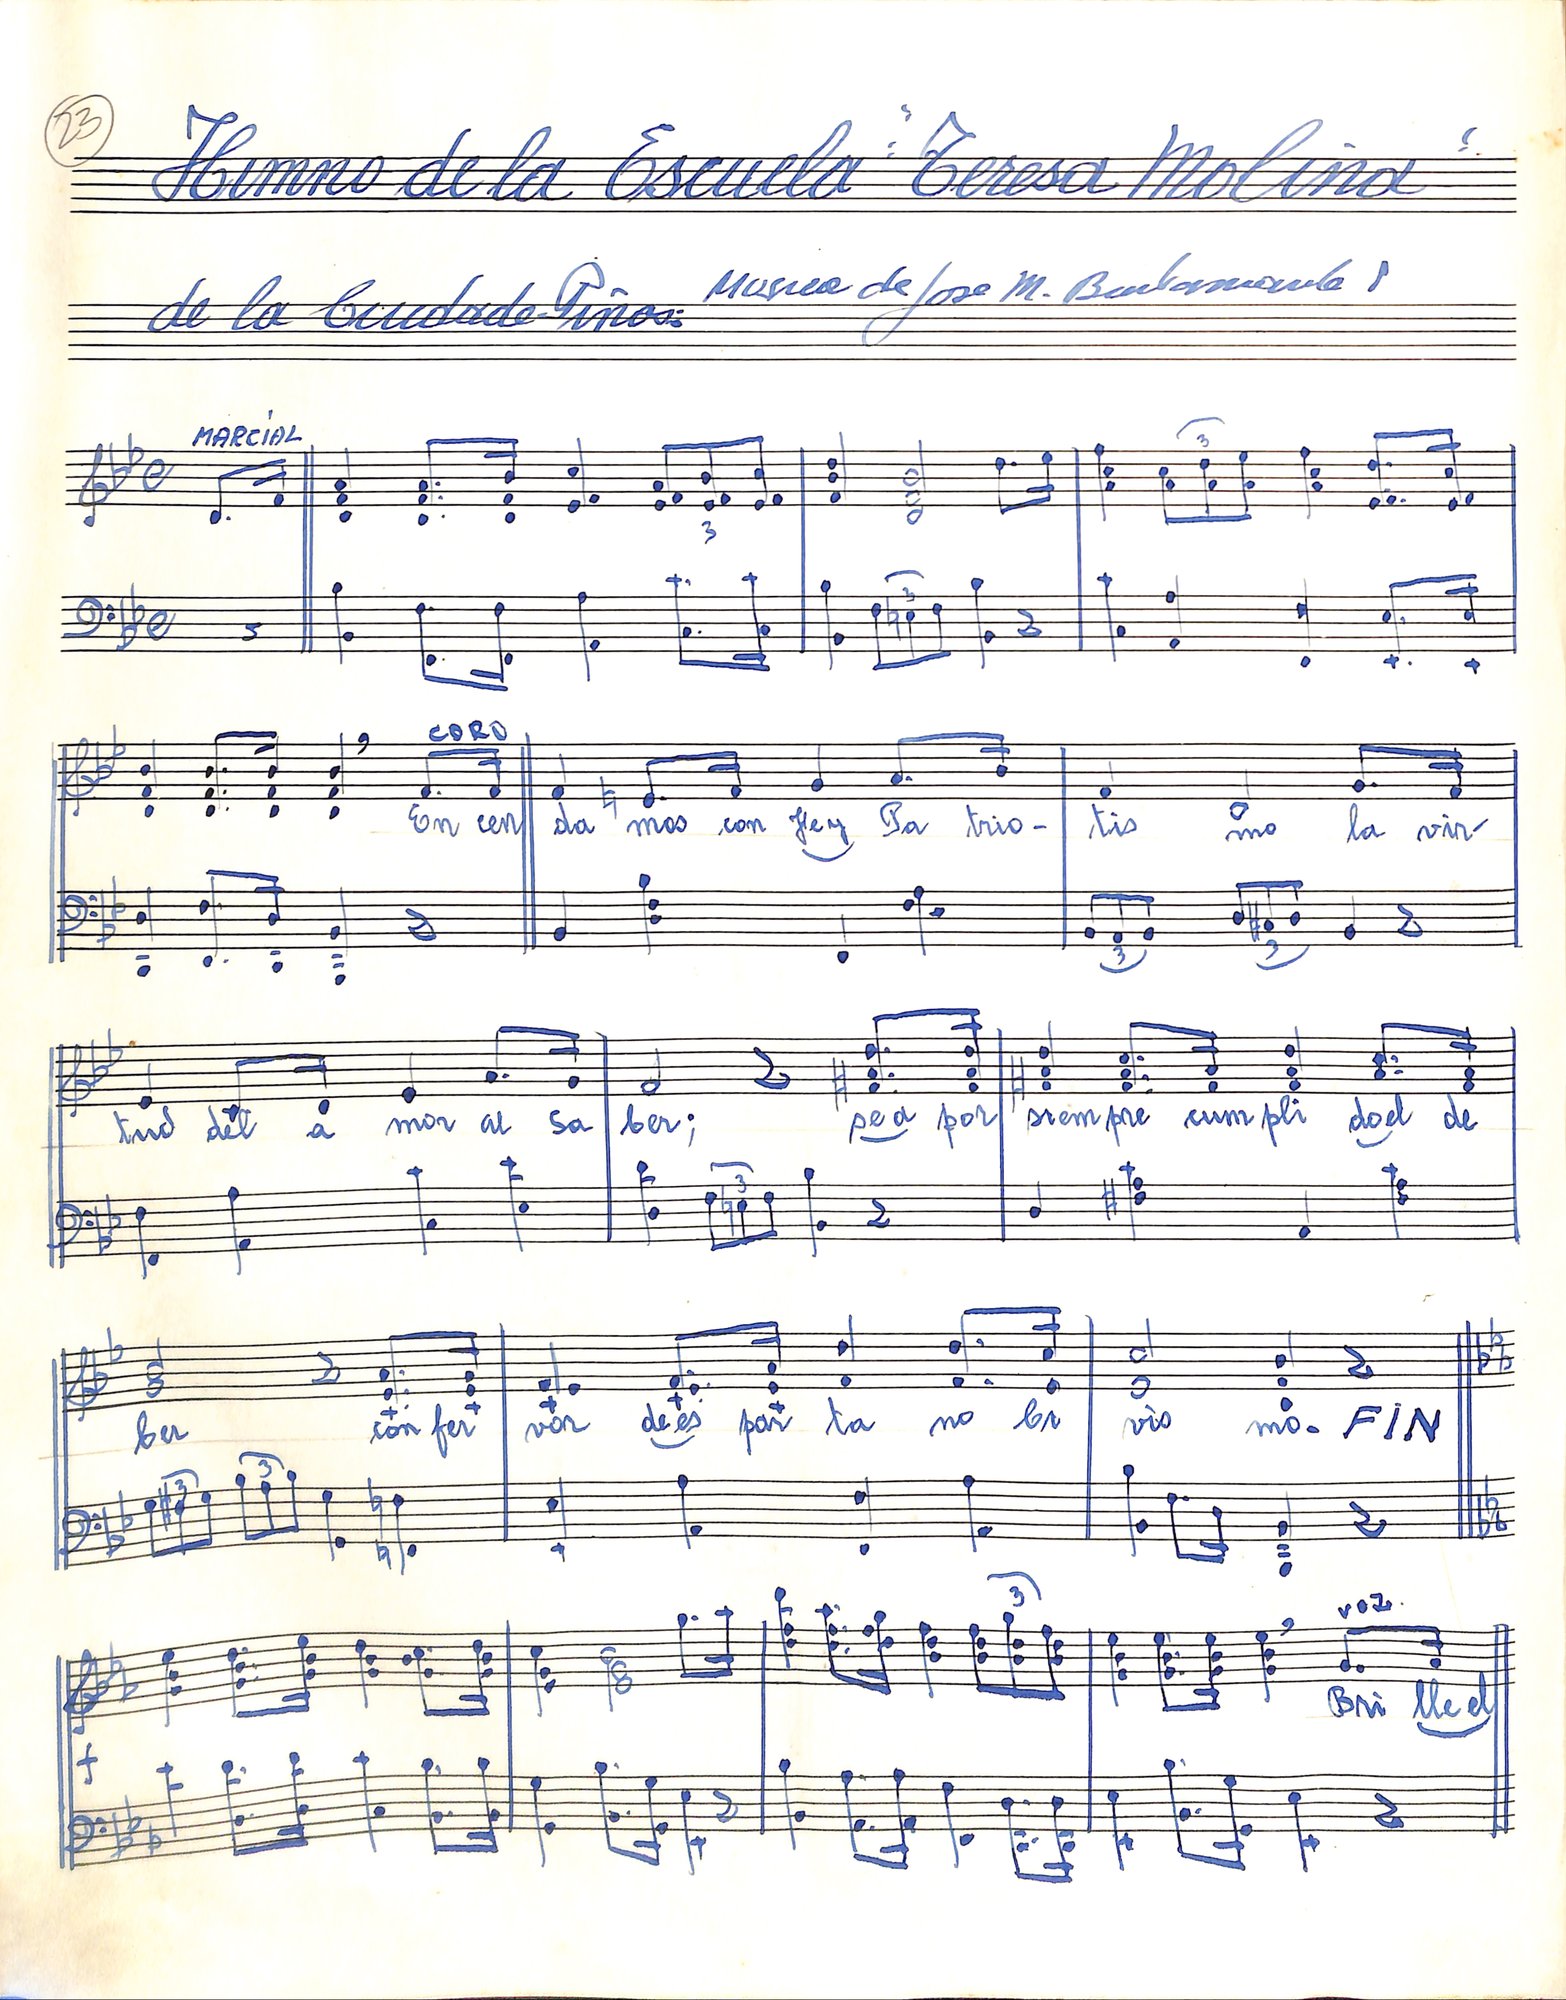 23
Himno de la Escuela "Teresa Molina"
de la Ciudad de Piñas: Musica de Jose M. Bustamante
MARCIAL
3
3
3
CORO
En cen da mos con fe y Pa trio- tis mo la vir-
3 3
tud del a mor al sa ber; sea por siem pre cum pli doel de
3
ber con fer vor de es par ta no ci vis mo. FIN
3 3
3
voz.
Bri lle el
f